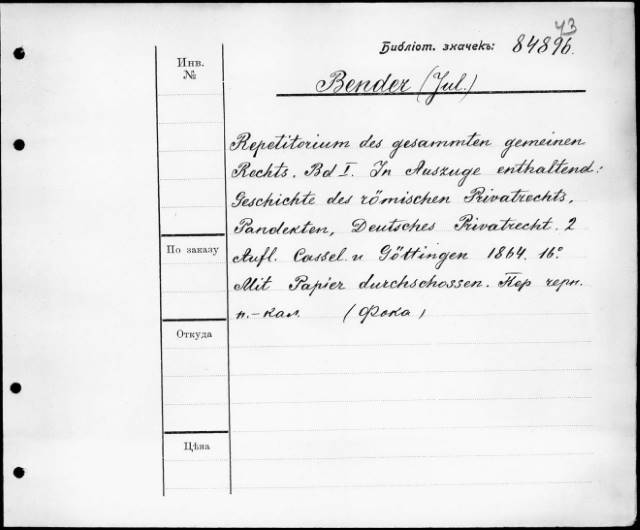 43
Библіот. значекъ: 84896.
Инв.
№
Bender (Jul.)
Repetitorium des gesammten gemeinen
Rechts. Bd I. In Auszuge enthaltend:
Geschichte des römischen Privatrechts,
Pandekten, Deutsches Privatrecht. 2
По заказу
Aufl. Cassel. u Göttingen 1864. 16°
Mit Papier durchschossen. Пер черн.
к.-кал. (Фока)
Откуда
Цѣна